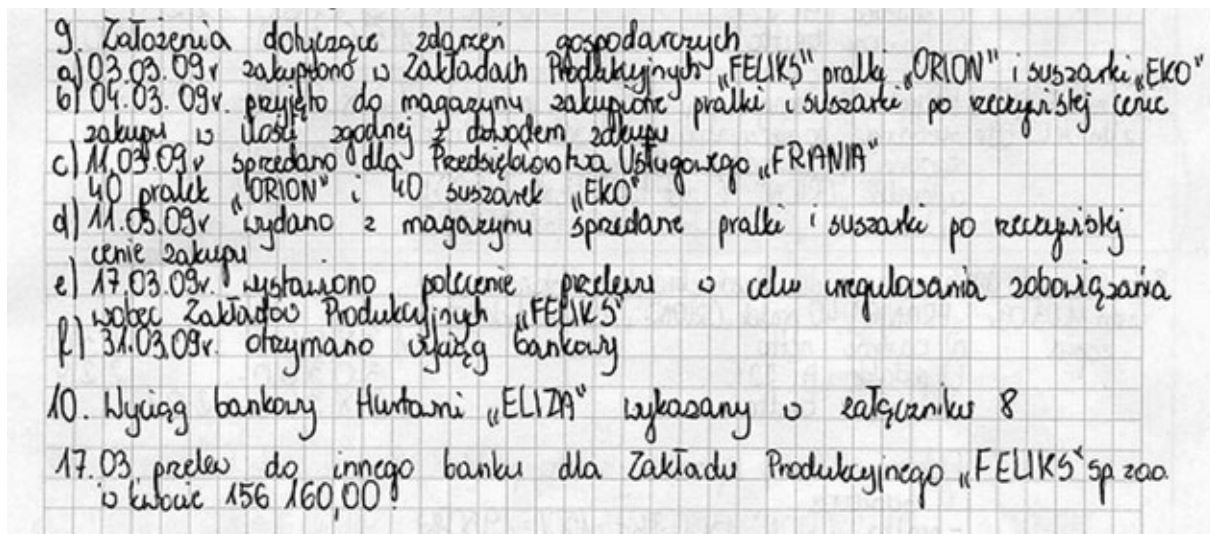 9. Założenia dotyczące zdarzeń gospodarczych
a) 03.03.09r zakupiono w Zakładach Produkcyjnych „FELIKS" pralki „ORION" i suszarki „EKO"
b) 04.03.09r. przyjęto do magazynu zakupione pralki i suszarki po rzeczywistej cenie
zakupu w ilości zgodnej z dowodem zakupu
c) 11.03.09r sprzedano dla Przedsiębiorstwa Usługowego „FRANIA"
40 pralek „ORION" i 40 suszarek „EKO"
d) 11.03.09r wydano z magazynu sprzedane pralki i suszarki po rzeczywistej
cenie zakupu
e) 17.03.09r. wystawiono polecenie przelewu w celu uregulowania zobowiązania
wobec Zakładów Produkcyjnych „FELIKS"
f) 31.03.09r. otrzymano wyciąg bankowy
10. Wyciąg bankowy Hurtowni „ELIZA" wykazany w załączniku 8
17.03 przelew do innego banku dla Zakładu Produkcyjnego „FELIKS" sp. z o.o.
w kwocie 156 160,00.